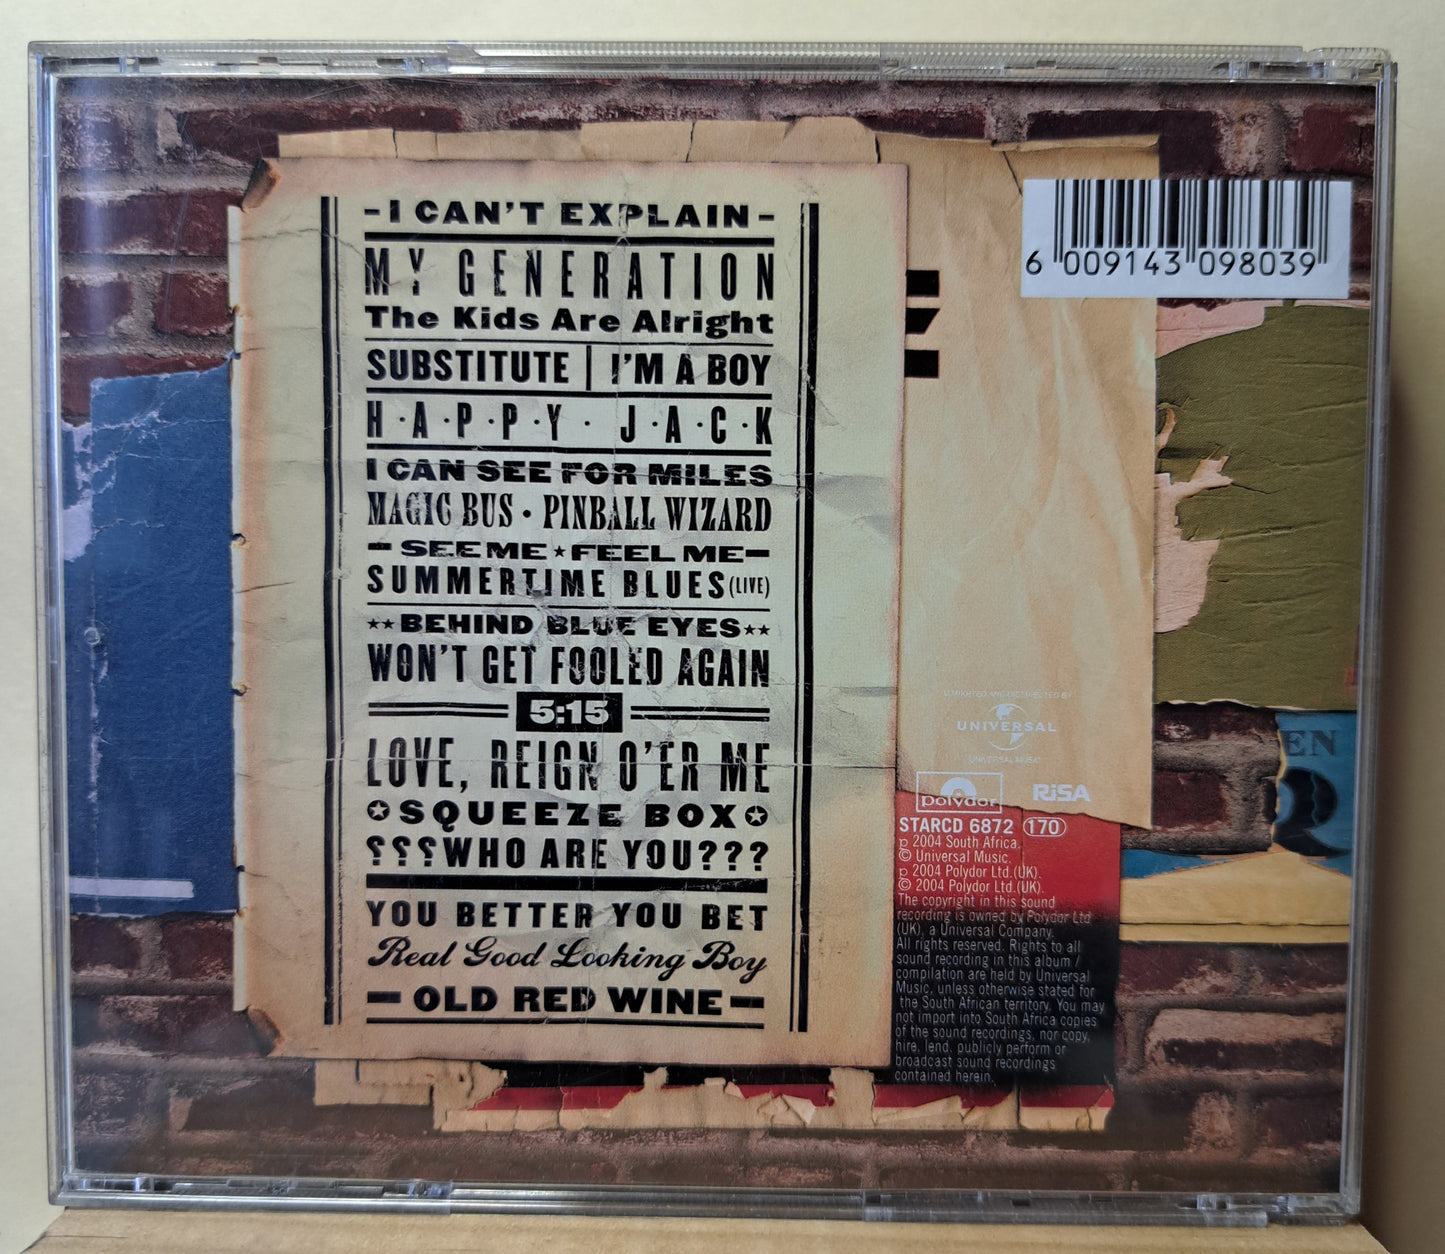 -I CAN'T EXPLAIN-
MY GENERATION
The Kids Are Alright
SUBSTITUTE | I'M A BOY
H·A·P·P·Y· J·A·C·K
I CAN SEE FOR MILES
MAGIC BUS · PINBALL WIZARD
-SEE ME★FEEL ME-
SUMMERTIME BLUES (LIVE)
★★BEHIND BLUE EYES★★
WON'T GET FOOLED AGAIN
5:15
LOVE, REIGN O'ER ME
✪SQUEEZE BOX✪
???WHO ARE YOU???
YOU BETTER YOU BET
Real Good Looking Boy
-OLD RED WINE-
6 009143 098039
MARKETED AND DISTRIBUTED BY
UNIVERSAL
UNIVERSAL MUSIC
polydor
RiSA
STARCD 6872 (170)
p 2004 South Africa.
© Universal Music.
p 2004 Polydor Ltd.(UK).
© 2004 Polydor Ltd.(UK).
The copyright in this sound
recording is owned by Polydor Ltd
(UK), a Universal Company.
All rights reserved. Rights to all
sound recording in this album /
compilation are held by Universal
Music, unless otherwise stated for
the South African territory. You may
not import into South Africa copies
of the sound recordings, nor copy,
hire, lend, publicly perform or
broadcast sound recordings
contained herein.
EN